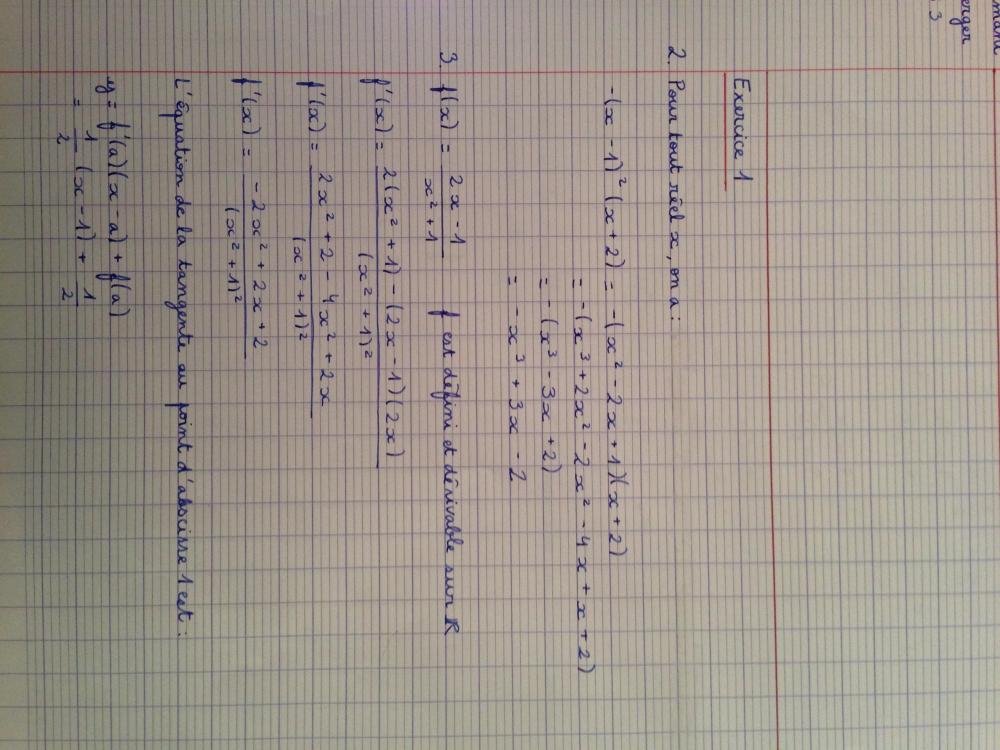 erger
3
Exercice 1
2. Pour tout réel x, on a :
-(x - 1)² (x + 2) = -(x² - 2x + 1)(x + 2)
= -(x³ + 2x² - 2x² - 4x + x + 2)
= -(x³ - 3x + 2)
= - x³ + 3x - 2
3. f(x) = (2x - 1)/(x² + 1) f est défini et dérivable sur R
f'(x) = (2(x² + 1) - (2x - 1)(2x))/(x² + 1)²
f'(x) = (2x² + 2 - 4x² + 2x)/(x² + 1)²
f'(x) = (-2x² + 2x + 2)/(x² + 1)²
L'équation de la tangente au point d'abscisse 1 est :
y = f'(a)(x - a) + f(a)
= 1/2 (x - 1) + 1/2